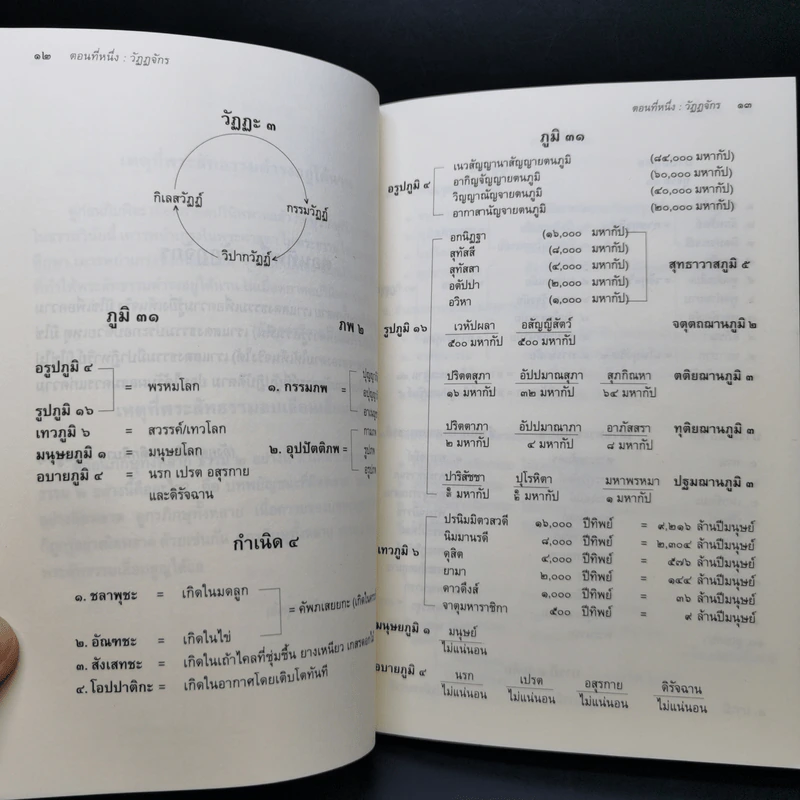 ๑๒ ตอนที่หนึ่ง : วัฏฏจักร
วัฏฏะ ๓
กิเลสวัฏฏ์
กรรมวัฏฏ์
วิปากวัฏฏ์
ภูมิ ๓๑
อรูปภูมิ ๔
รูปภูมิ ๑๖
= พรหมโลก
เทวภูมิ ๖ = สวรรค์/เทวโลก
มนุษยภูมิ ๑ = มนุษยโลก
อบายภูมิ ๔ = นรก เปรต อสุรกาย
และดิรัจฉาน
ภพ ๒
๑. กรรมภพ =
๒. อุปปัตติภพ =
กำเนิด ๔
๑. ชลาพุชะ = เกิดในมดลูก
= คัพภเสยยกะ
๒. อัณฑชะ = เกิดในไข่
๓. สังเสทชะ = เกิดในเถ้าไคลที่ชุ่มชื้น ยางเหนียว
๔. โอปปาติกะ = เกิดในอากาศโดยเติบโตทันที
ตอนที่หนึ่ง : วัฏฏจักร ๑๓
ภูมิ ๓๑
อรูปภูมิ ๔
เนวสัญญานาสัญญายตนภูมิ (๘๔,๐๐๐ มหากัป)
อากิญจัญญายตนภูมิ (๖๐,๐๐๐ มหากัป)
วิญญาณัญจายตนภูมิ (๔๐,๐๐๐ มหากัป)
อากาสานัญจายตนภูมิ (๒๐,๐๐๐ มหากัป)
รูปภูมิ ๑๖
อกนิฏฐา (๑๖,๐๐๐ มหากัป)
สุทัสสี (๘,๐๐๐ มหากัป)
สุทัสสา (๔,๐๐๐ มหากัป)
อตัปปา (๒,๐๐๐ มหากัป)
อวิหา (๑,๐๐๐ มหากัป)
สุทธาวาสภูมิ ๕
เวหัปผลา อสัญญีสัตว์ จตุตถฌานภูมิ ๒
๕๐๐ มหากัป ๕๐๐ มหากัป
ปริตตสุภา อัปปมาณสุภา สุภกิณหา ตติยฌานภูมิ ๓
๑๖ มหากัป ๓๒ มหากัป ๖๔ มหากัป
ปริตตาภา อัปปมาณาภา อาภัสสรา ทุติยฌานภูมิ ๓
๒ มหากัป ๔ มหากัป ๘ มหากัป
ปาริสัชชา ปุโรหิตา มหาพรหมา ปฐมฌานภูมิ ๓
มหากัป มหากัป ๑ มหากัป
เทวภูมิ ๖
ปรนิมมิตวสวดี ๑๖,๐๐๐ ปีทิพย์ = ๙,๒๑๖ ล้านปีมนุษย์
นิมมานรดี ๘,๐๐๐ ปีทิพย์ = ๒,๓๐๔ ล้านปีมนุษย์
ดุสิต ๔,๐๐๐ ปีทิพย์ = ๕๗๖ ล้านปีมนุษย์
ยามา ๒,๐๐๐ ปีทิพย์ = ๑๔๔ ล้านปีมนุษย์
ดาวดึงส์ ๑,๐๐๐ ปีทิพย์ = ๓๖ ล้านปีมนุษย์
จาตุมหาราชิกา ๕๐๐ ปีทิพย์ = ๙ ล้านปีมนุษย์
มนุษยภูมิ ๑ มนุษย์
ไม่แน่นอน
อบายภูมิ ๔ นรก เปรต อสุรกาย ดิรัจฉาน
ไม่แน่นอน ไม่แน่นอน ไม่แน่นอน ไม่แน่นอน